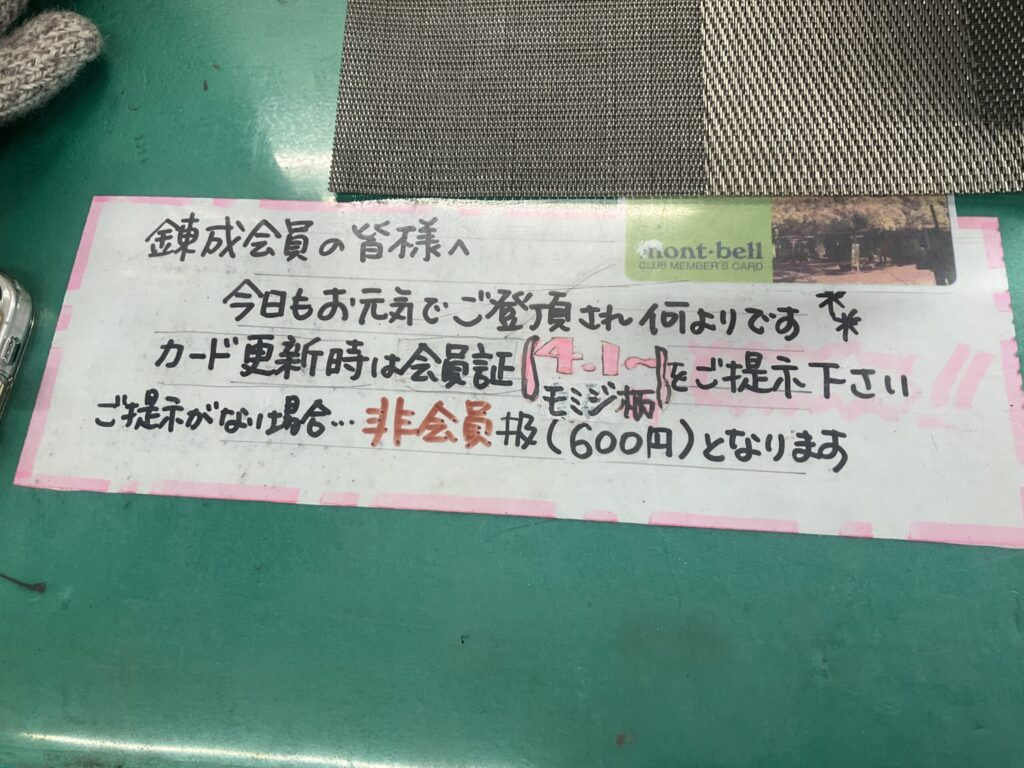 錬成会員の皆様へ
mont-bell
CLUB MEMBER'S CARD
今日もお元気でご登頂され何よりです**
カード更新時は会員証(4.1〜モミジ柄)をご提示下さい
ご提示がない場合…非会員扱(600円)となります